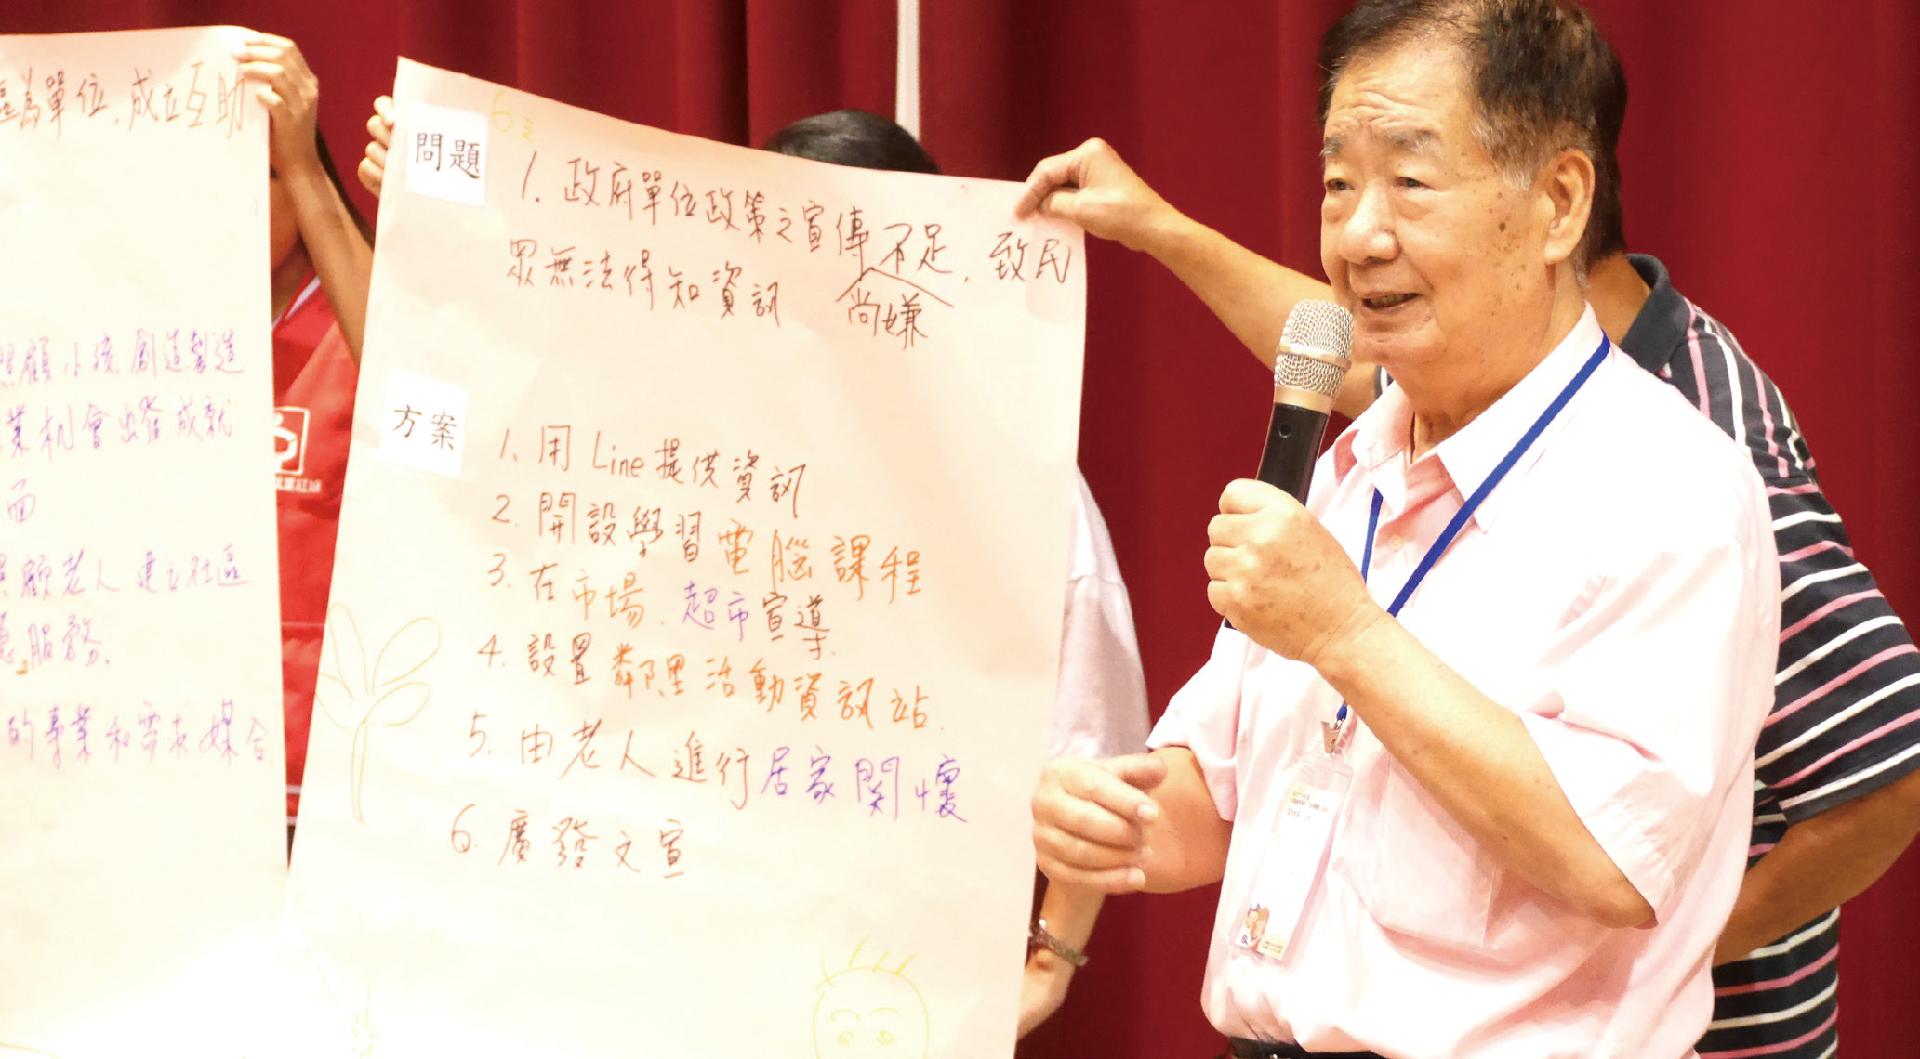 區為單位，成立互助
照顧小孩，創造製造
業机會出發成就
面
照顧老人 建立社區
服務.
的事業和需求媒合
6
問題
1. 政府單位政策之宣傳不足，致民
尚嫌
眾無法得知資訊
方案
1、用 Line 提供資訊
2. 開設學習電腦課程
3. 在市場、超市宣導.
4. 設置鄰里活動資訊站.
5. 由老人進行居家関懷
6. 廣發文宣